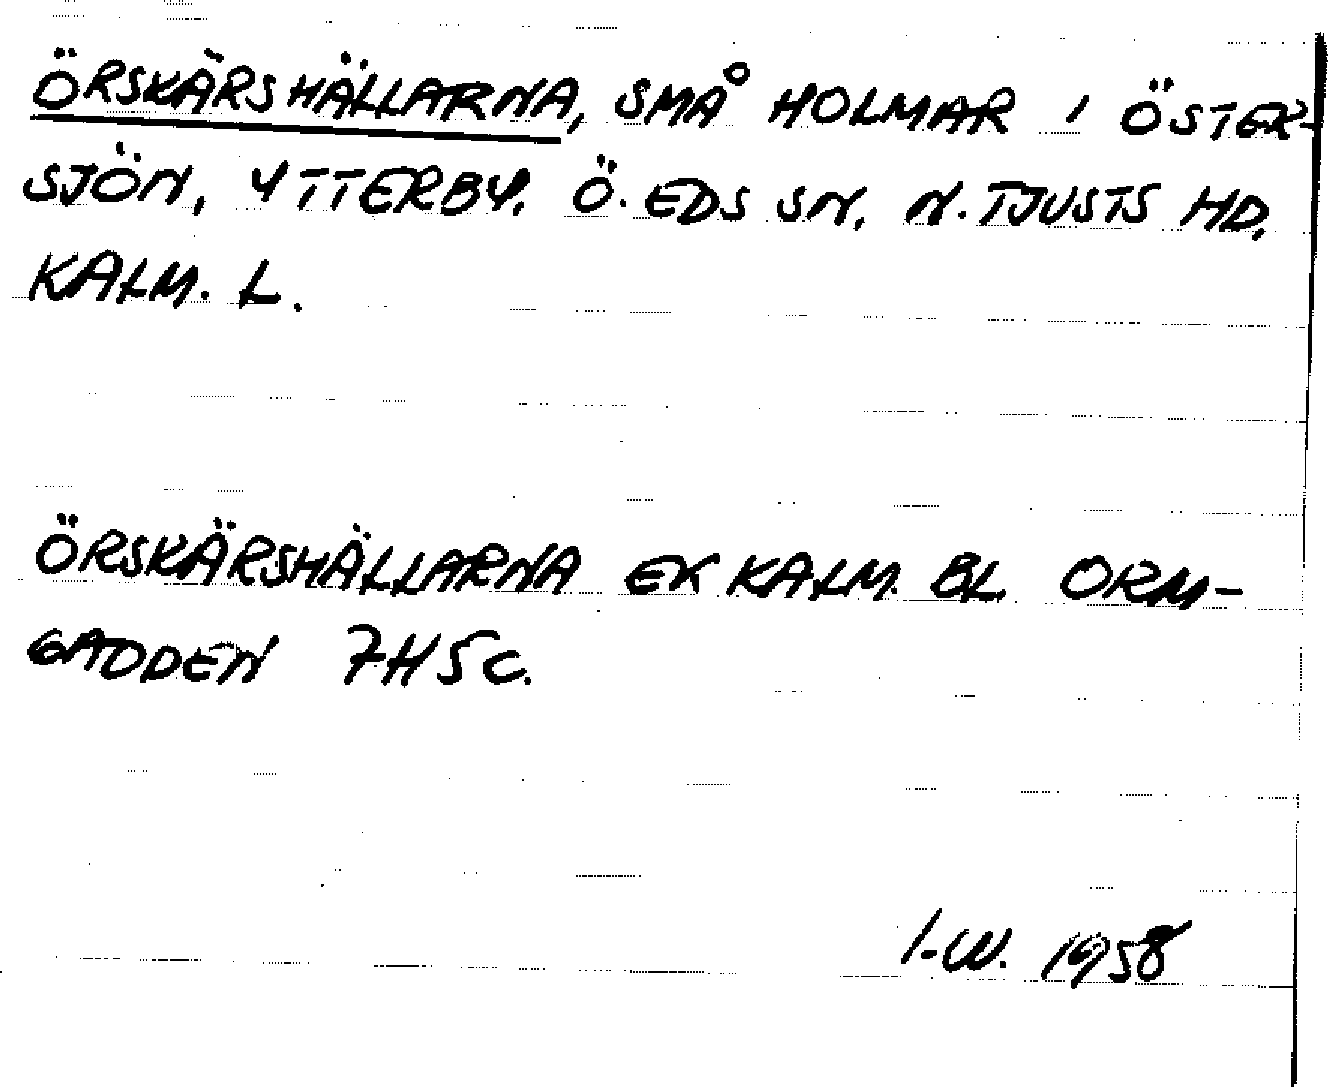 ÖRSKÄRSHÄLLARNA, SMÅ HOLMAR I ÖSTER-
SJÖN, YTTERBY. Ö. EDS SN. N. TJUSTS HD.
KALM. L.
ÖRSKÄRSHÄLLARNA EK KALM. BL. ORM-
GADDEN 7H5c.
I-W. 1958